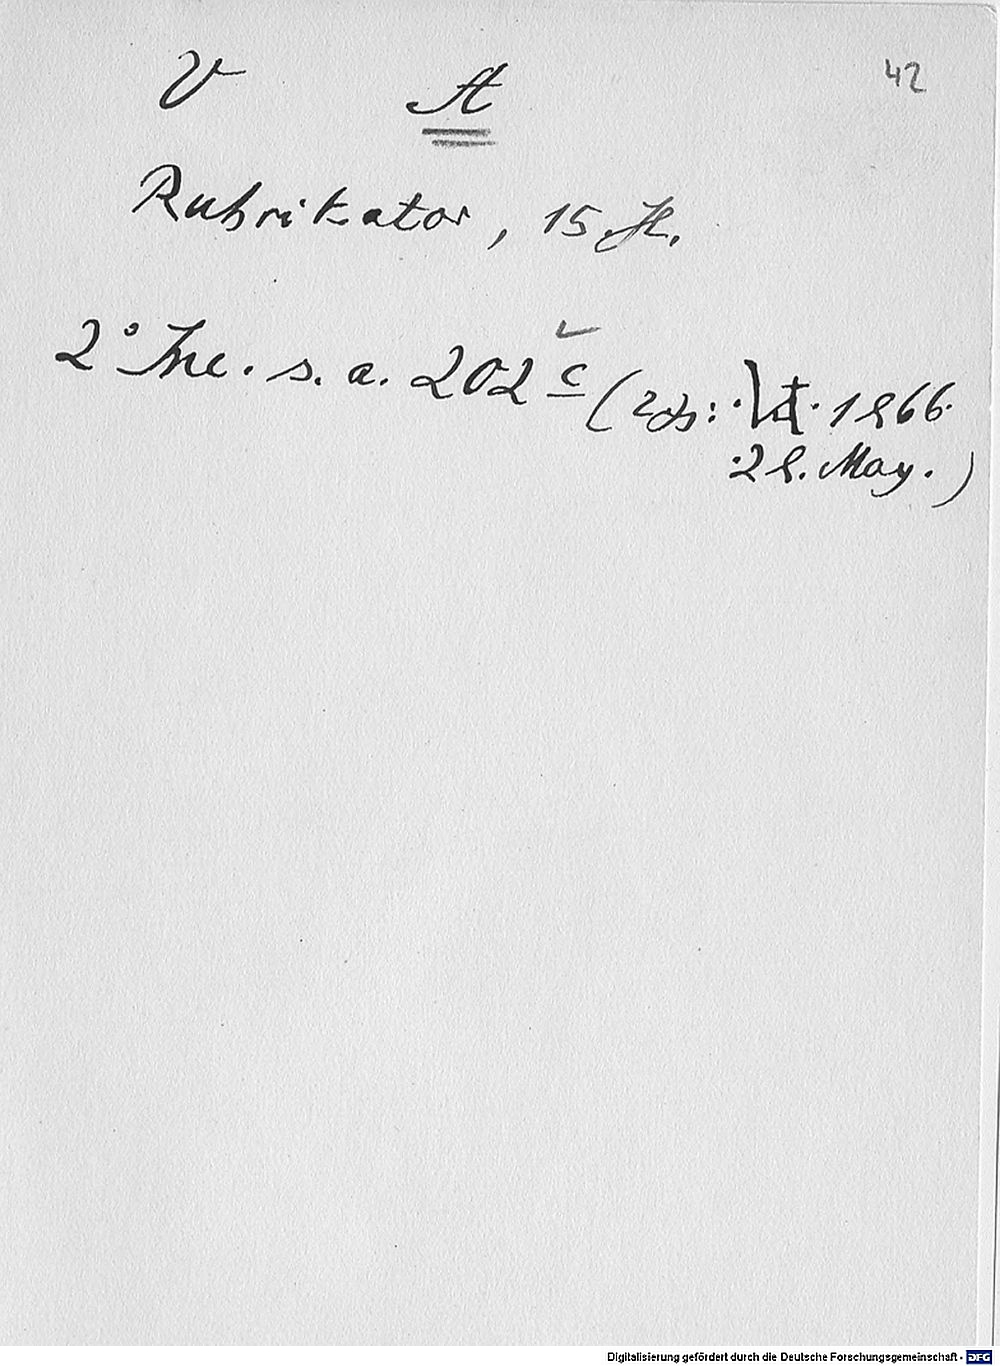 V A 42
Rubrikator, 15. Jh.
2° Inc. s. a. 202 c
1866.
28. May.)
Digitalisierung gefördert durch die Deutsche Forschungsgemeinschaft - DFG